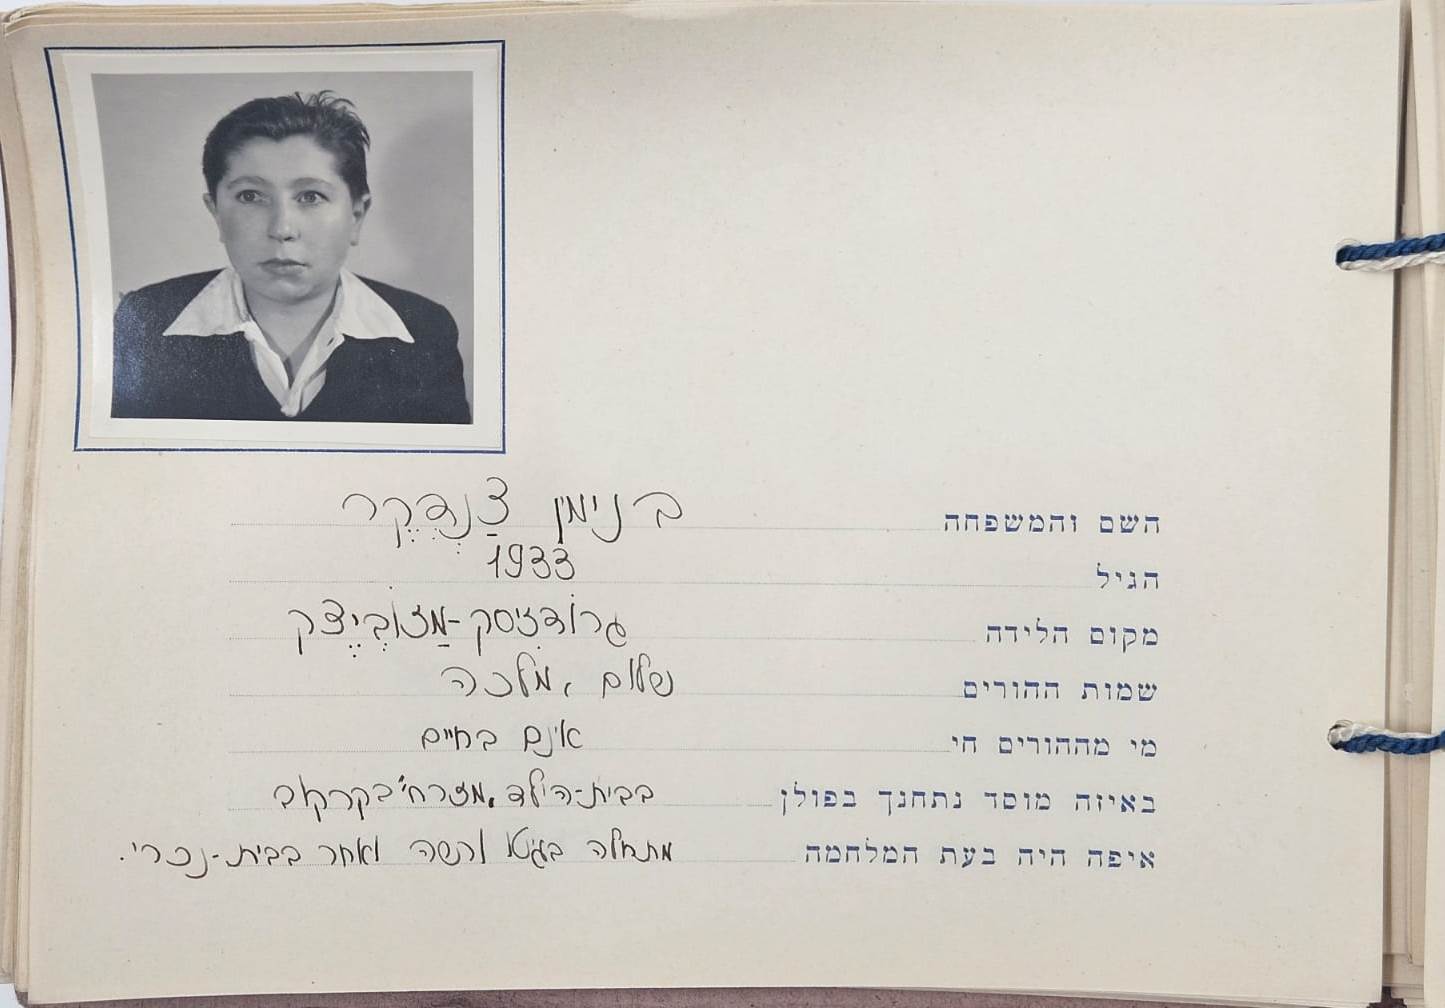 השם והמשפחה בנימין צַנְדֶקֶר
הגיל 1933
מקום הלידה גרודזיסק-מַזוֹבְיֶצק
שמות ההורים שלום, מלכה
מי מההורים חי אינם בחיים
באיזה מוסד נתחנך בפולן בבית-הילד "מזרחי" בקרקוב
איפה היה בעת המלחמה מתחלה בגיטו ורשה ולאחר בבית-נכרי.